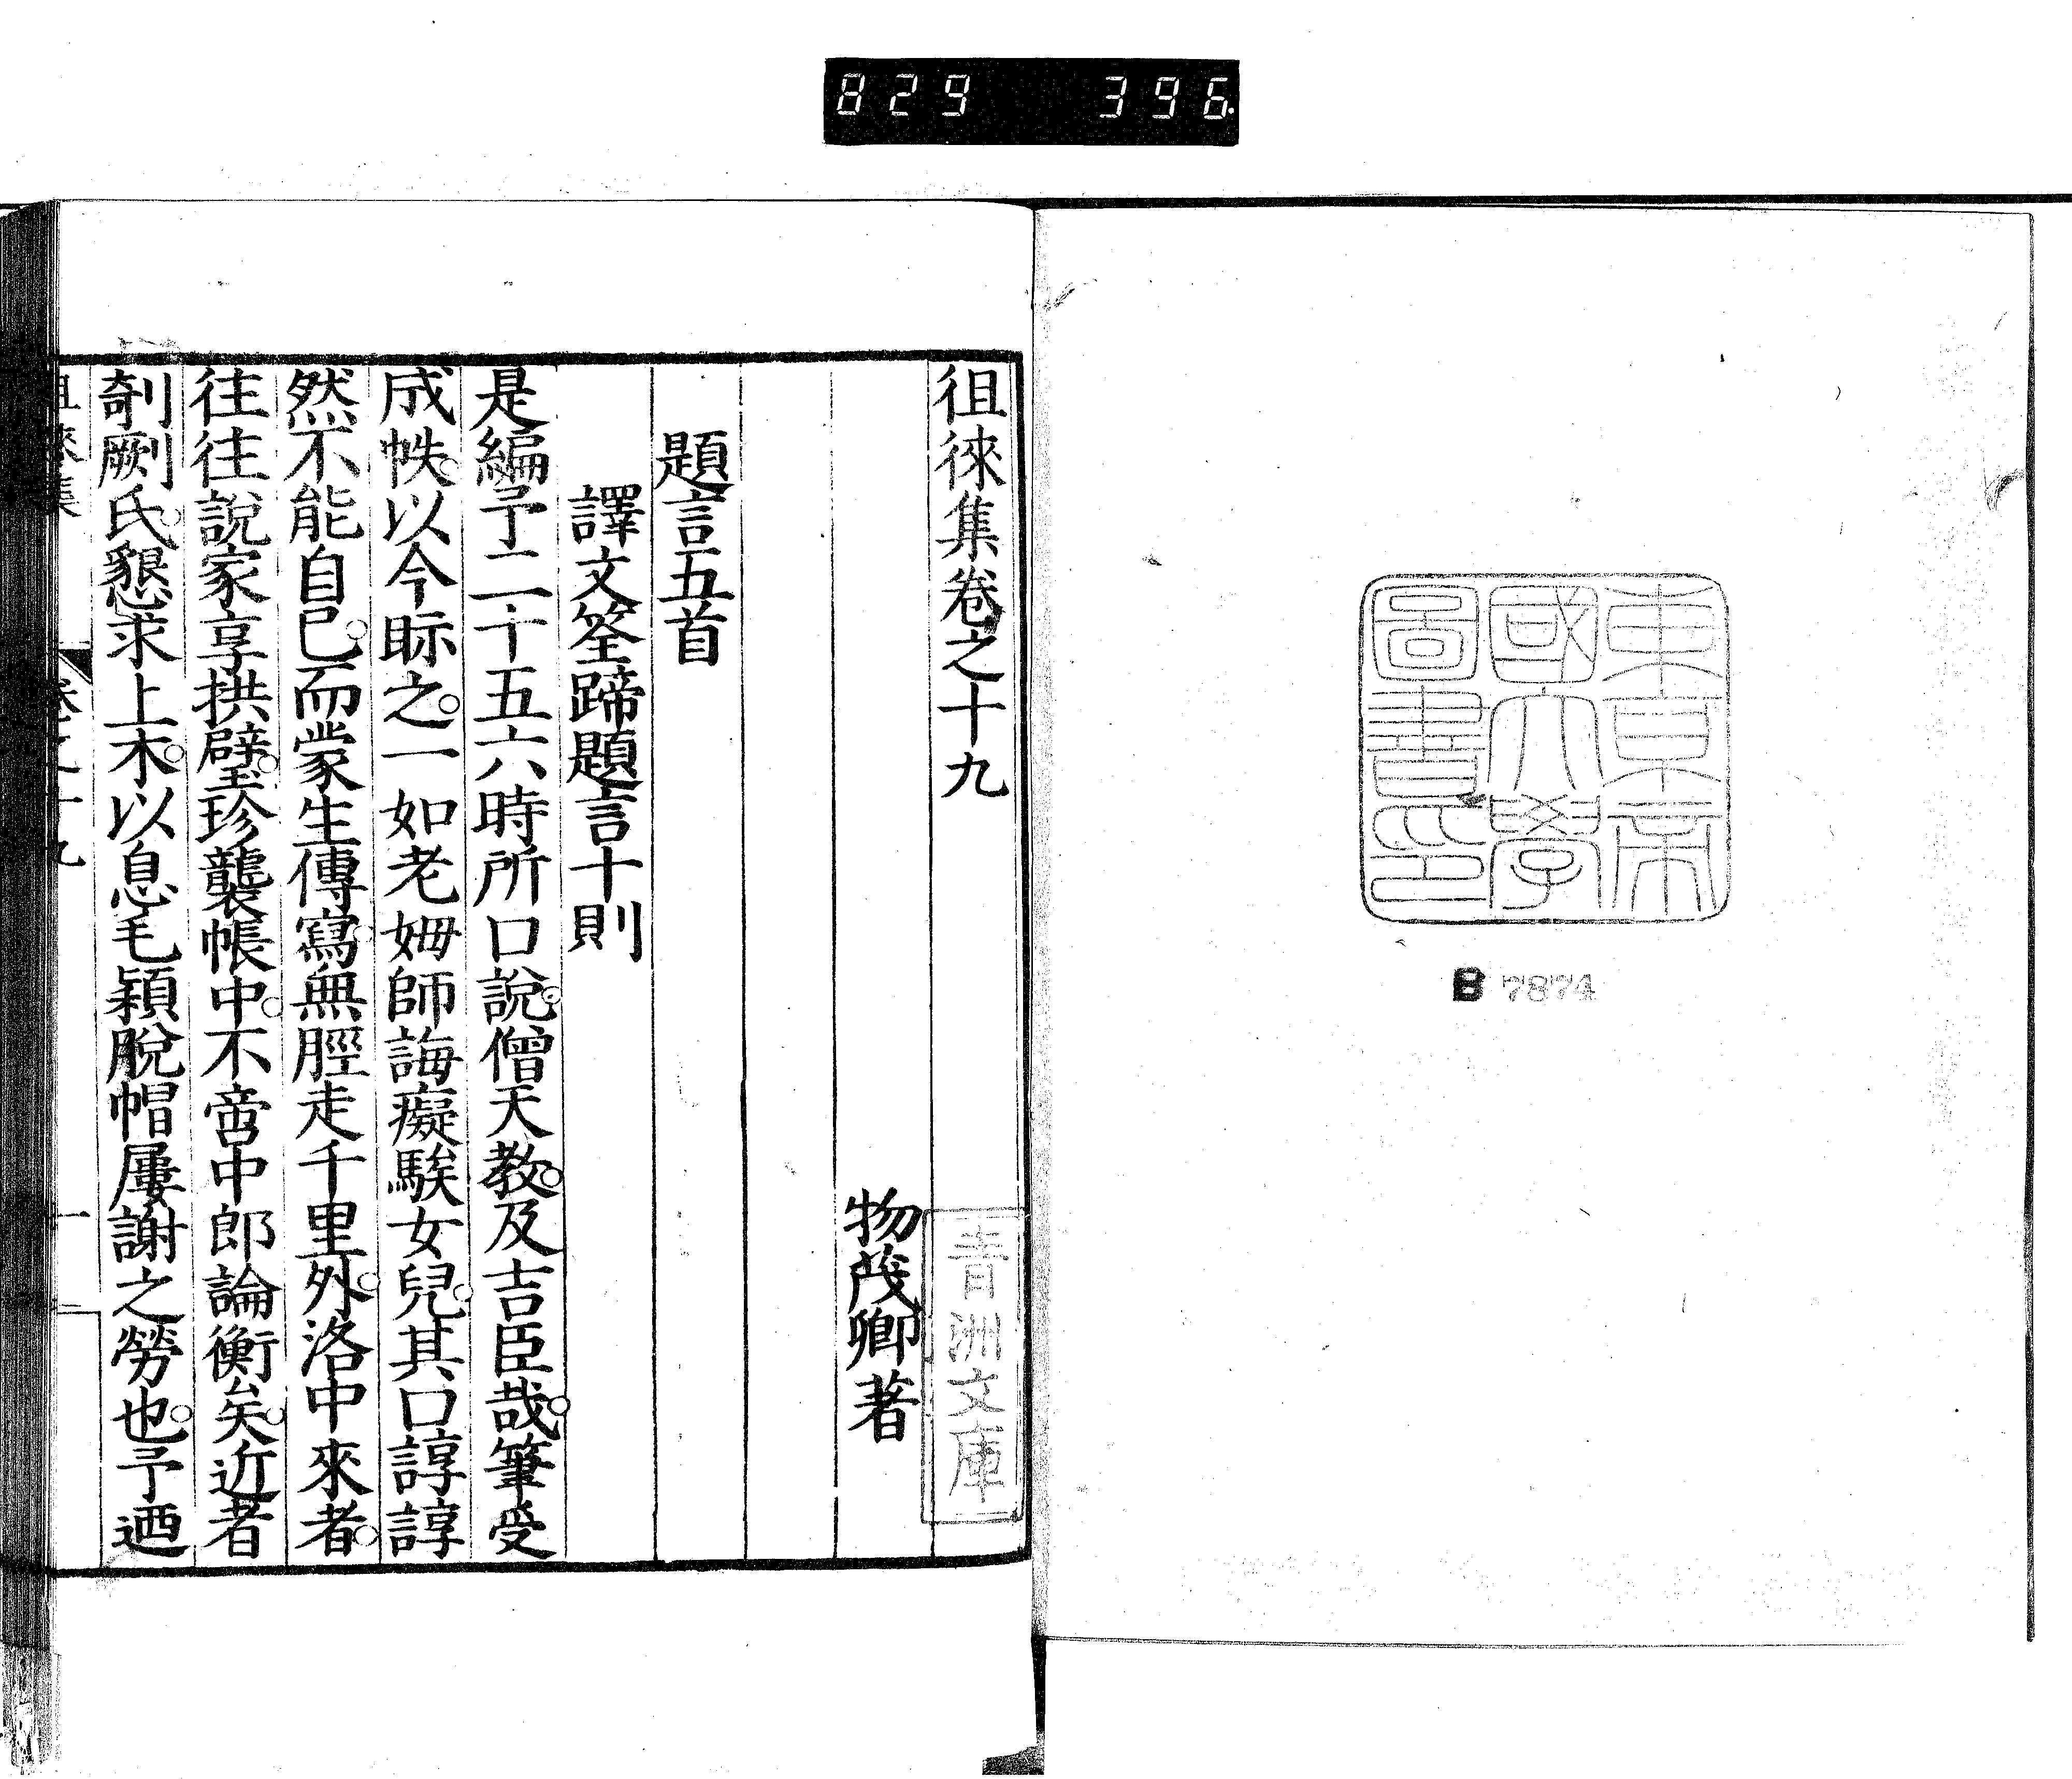 829 396.
東京帝
國大學
圖書印
B 7874
徂徠集卷之十九
青洲文庫
物茂卿著
題言五首
譯文筌蹄題言十則
是編予二十五六時所口說。僧天教。及吉臣哉。筆受
成帙。以今眎之。一如老姆師誨癡騃女兒。其口諄諄
然不能自已。而蒙生傳寫。無脛走千里外。洛中來者。
往往說家享拱璧。珍襲帳中。不啻中郎論衡矣。近者
剞劂氏。懇求上木。以息毛穎脫帽屢謝之勞也。予迺
徂徠集
卷之十九
一